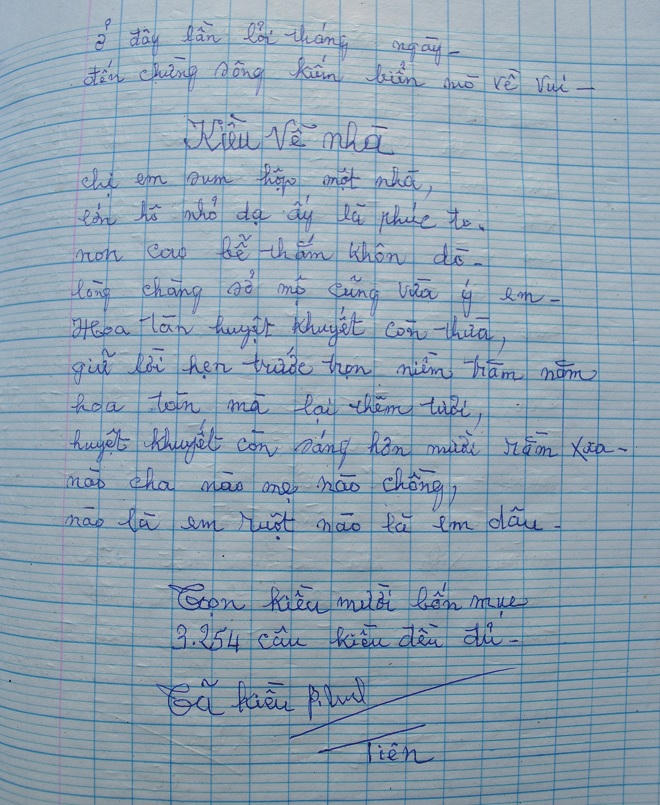 ở đây lần lỏi tháng ngày -
đến chừng sông kiến biển mò về vui -
Kiều Về nhà
chị em sum hộp một nhà,
lớn hô nhỏ dạ ấy là phúc to.
non cao bễ thấm khôn dò -
lòng chàng sở mộ cũng vừa ý em -
Hoa tàn huyệt khuyết còn thừa,
giữ lời hẹn trước trọn niềm trăm năm
hoa tàn mà lại thêm tươi,
huyết khuyết còn sáng hơn mười rằm xưa -
nào cha nào mẹ nào chồng,
nào là em ruột nào là em dâu -
Trọn kiều mười bốn mục
3.254 câu kiều đều đủ -
Tã kiều
Tiên